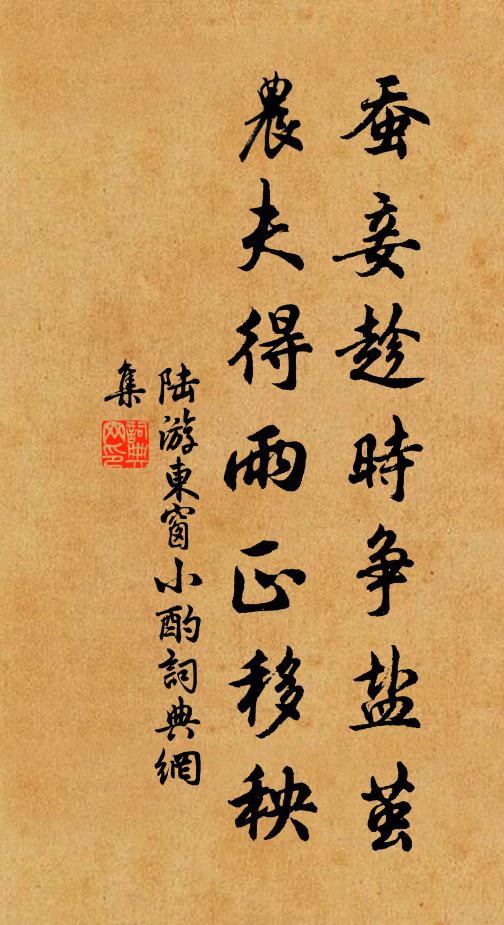 蚕妾趁時争盐茧
農夫得雨正移秧
陆游東窗小酌詞典網
集
詞典
网印